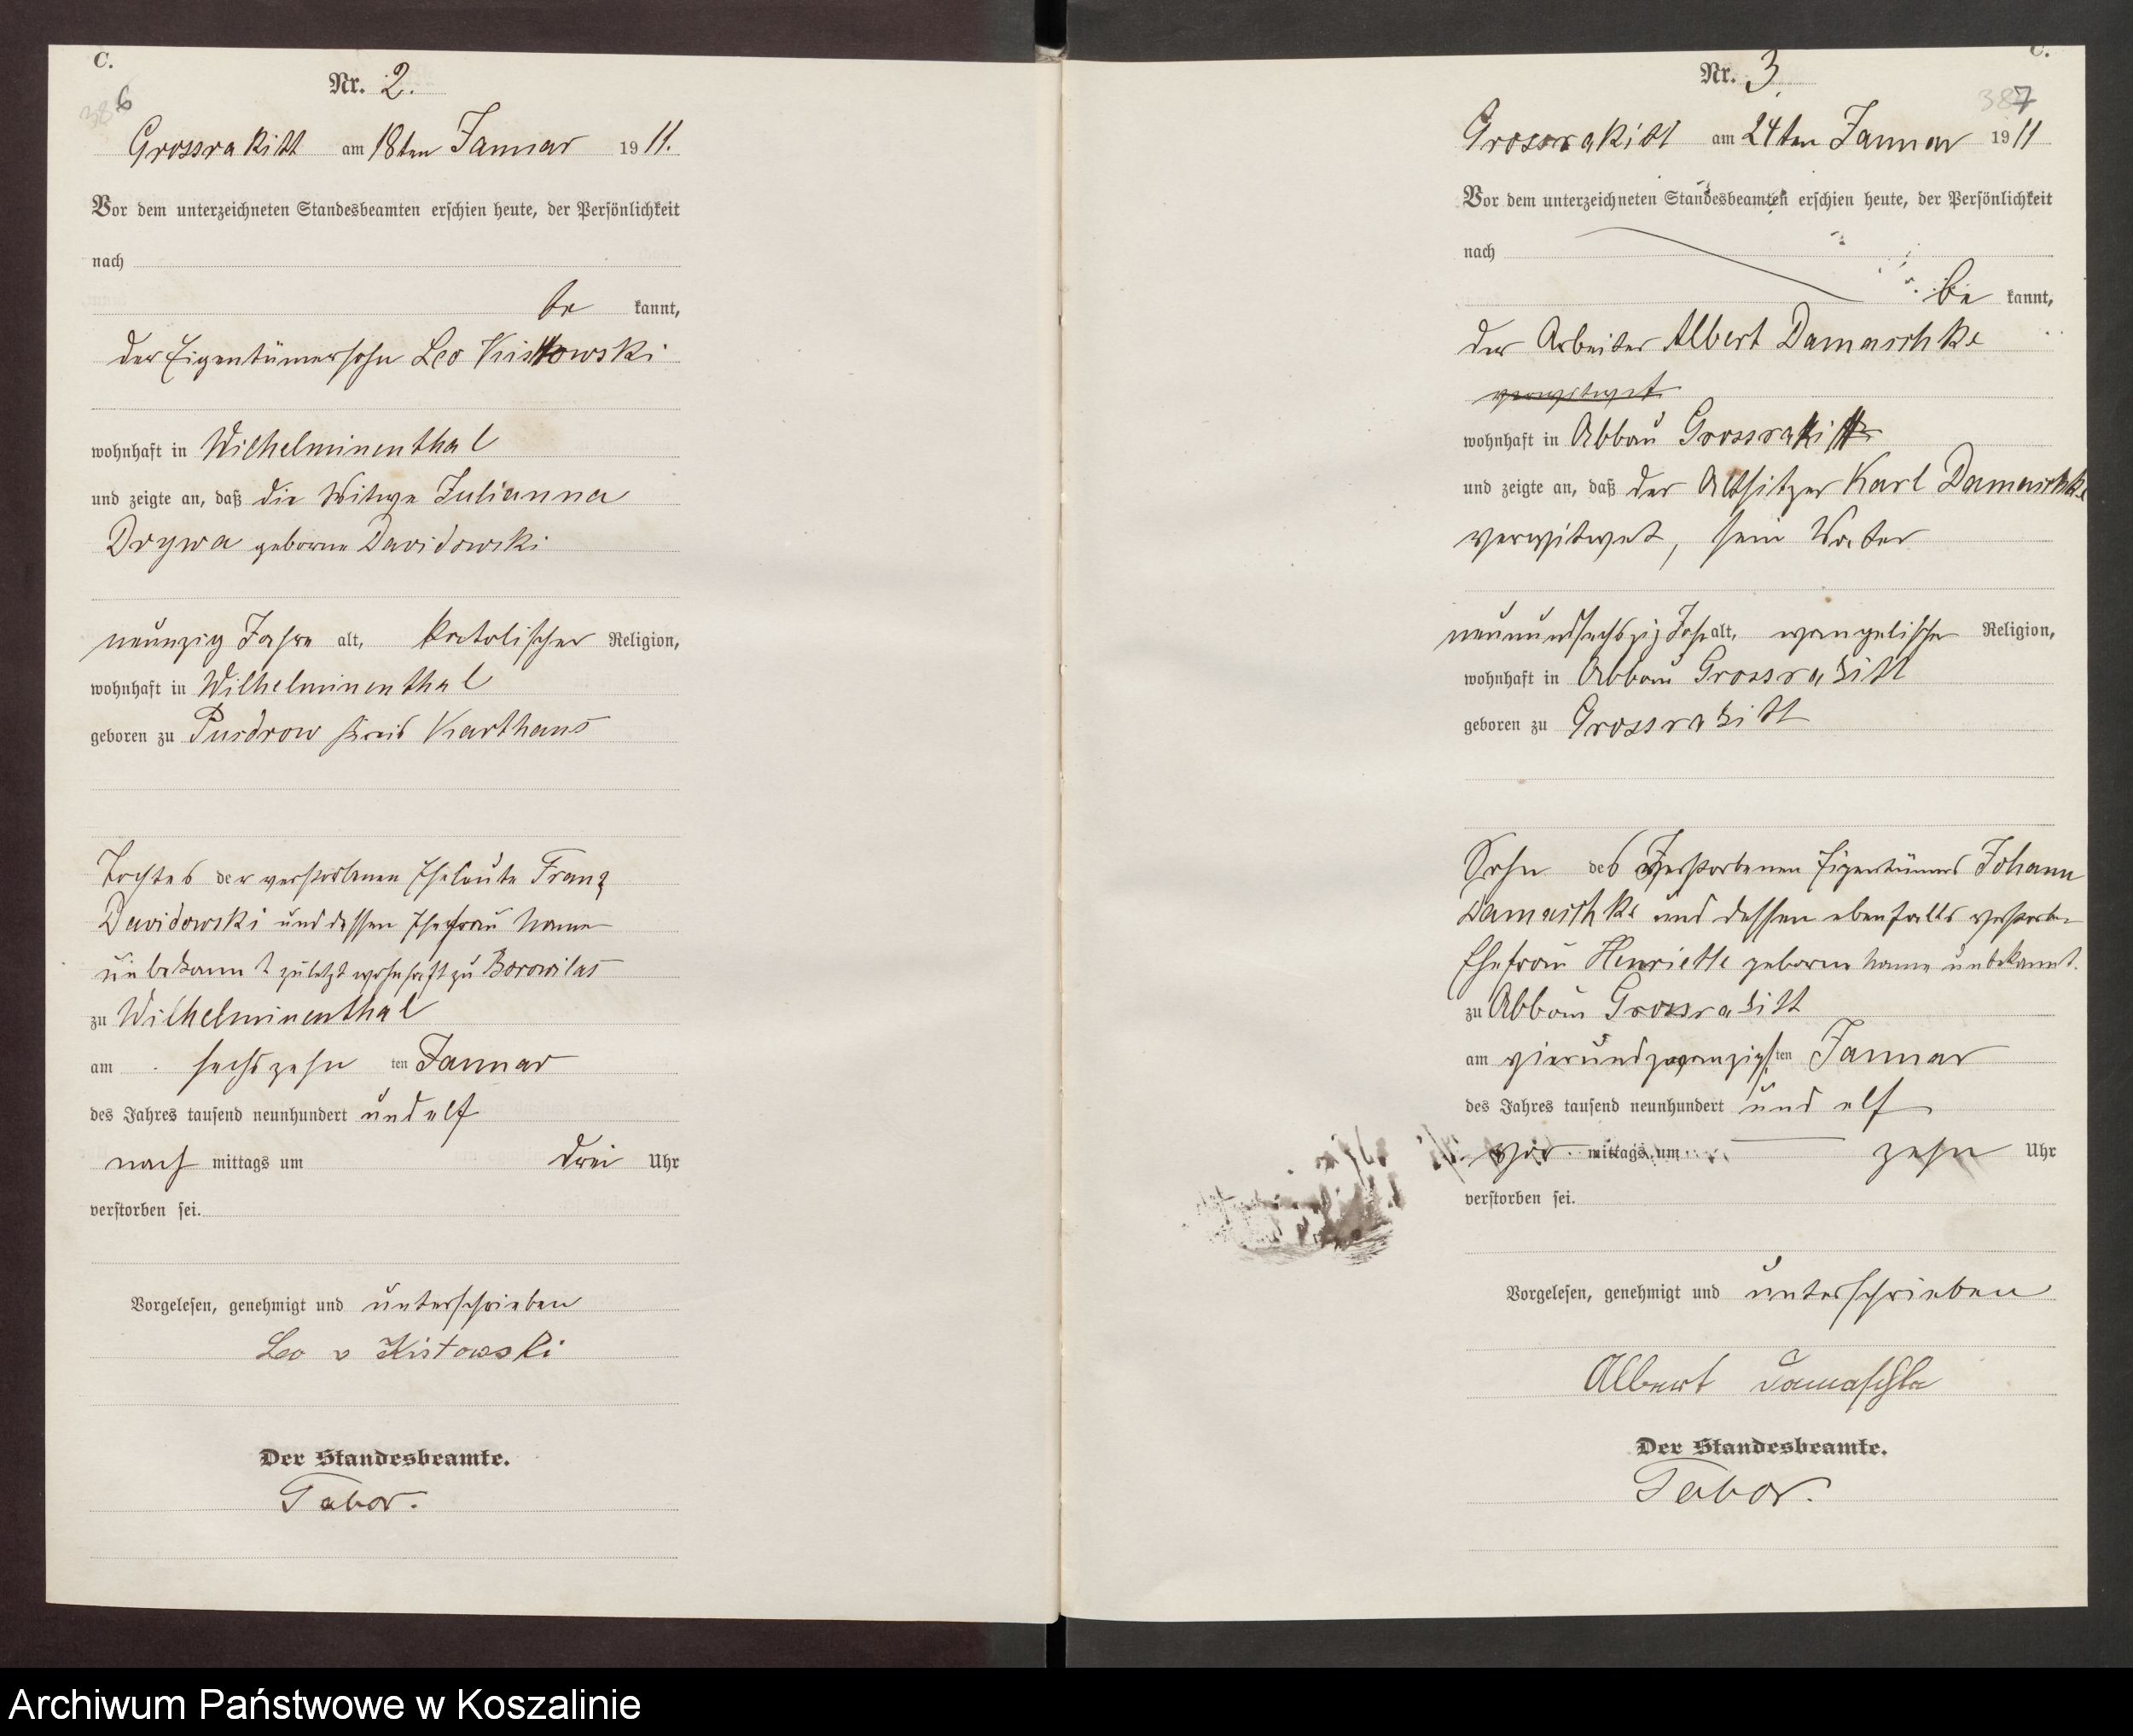 C.
Nr. 2.
386
Grossrakitt am 18ten Januar 1911.
Vor dem unterzeichneten Standesbeamten erschien heute, der Persönlichkeit
nach
be kannt,
der Eigentümersohn Leo Kistowski
wohnhaft in Wilhelminenthal
und zeigte an, daß die Witwe Julianna
Drywa geborne Davidowski
neunzig Jahre alt, katolischer Religion,
wohnhaft in Wilhelminenthal
geboren zu Pusdrow Kreis Karthaus
Tochter der verstorbenen Eheleute Franz
Davidowski und dessen Ehefrau Name
unbekannt zuletzt wohnhaft zu Borowilas
zu Wilhelminenthal
am sechszehn ten Januar
des Jahres tausend neunhundert und elf
nach mittags um drei Uhr
verstorben sei.
Vorgelesen, genehmigt und unterschrieben
Leo v Kistowski
Der Standesbeamte.
Tabor.
C.
Nr. 3
387
Grossrakitt am 24ten Januar 1911
Vor dem unterzeichneten Standesbeamten erschien heute, der Persönlichkeit
nach
be kannt,
der Arbeiter Albert Damaschke
verwitwet
wohnhaft in Abbau Grossrakitt
und zeigte an, daß der Altsitzer Karl Damaschke
verwitwet, sein Vater
neunundsechszig Jahr alt, evangelischer Religion,
wohnhaft in Abbau Grossrakitt
geboren zu Grossrakitt
Sohn des verstorbenen Eigentümers Johann
Damaschke und dessen ebenfalls verstorbene
Ehefrau Henriette geborne Name unbekannt.
zu Abbau Grossrakitt
am vierundzwanzigsten Januar
des Jahres tausend neunhundert und elf
vor mittags um zehn Uhr
verstorben sei.
Vorgelesen, genehmigt und unterschrieben
Albert Damaschke
Der Standesbeamte.
Tabor.
Archiwum Państwowe w Koszalinie